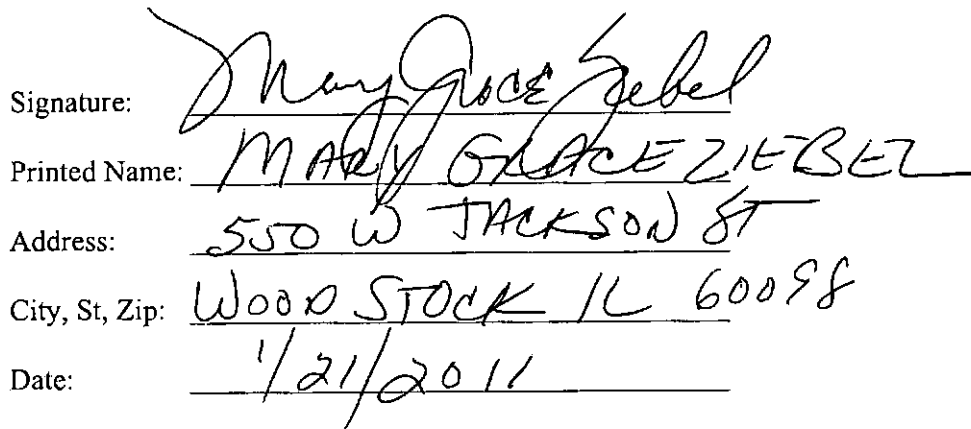 Signature: Mary Grace Ziebel
Printed Name: MARY GRACE ZIEBEL
Address: 550 W JACKSON ST
City, St, Zip: WOOD STOCK IL 60098
Date: 1/21/2011